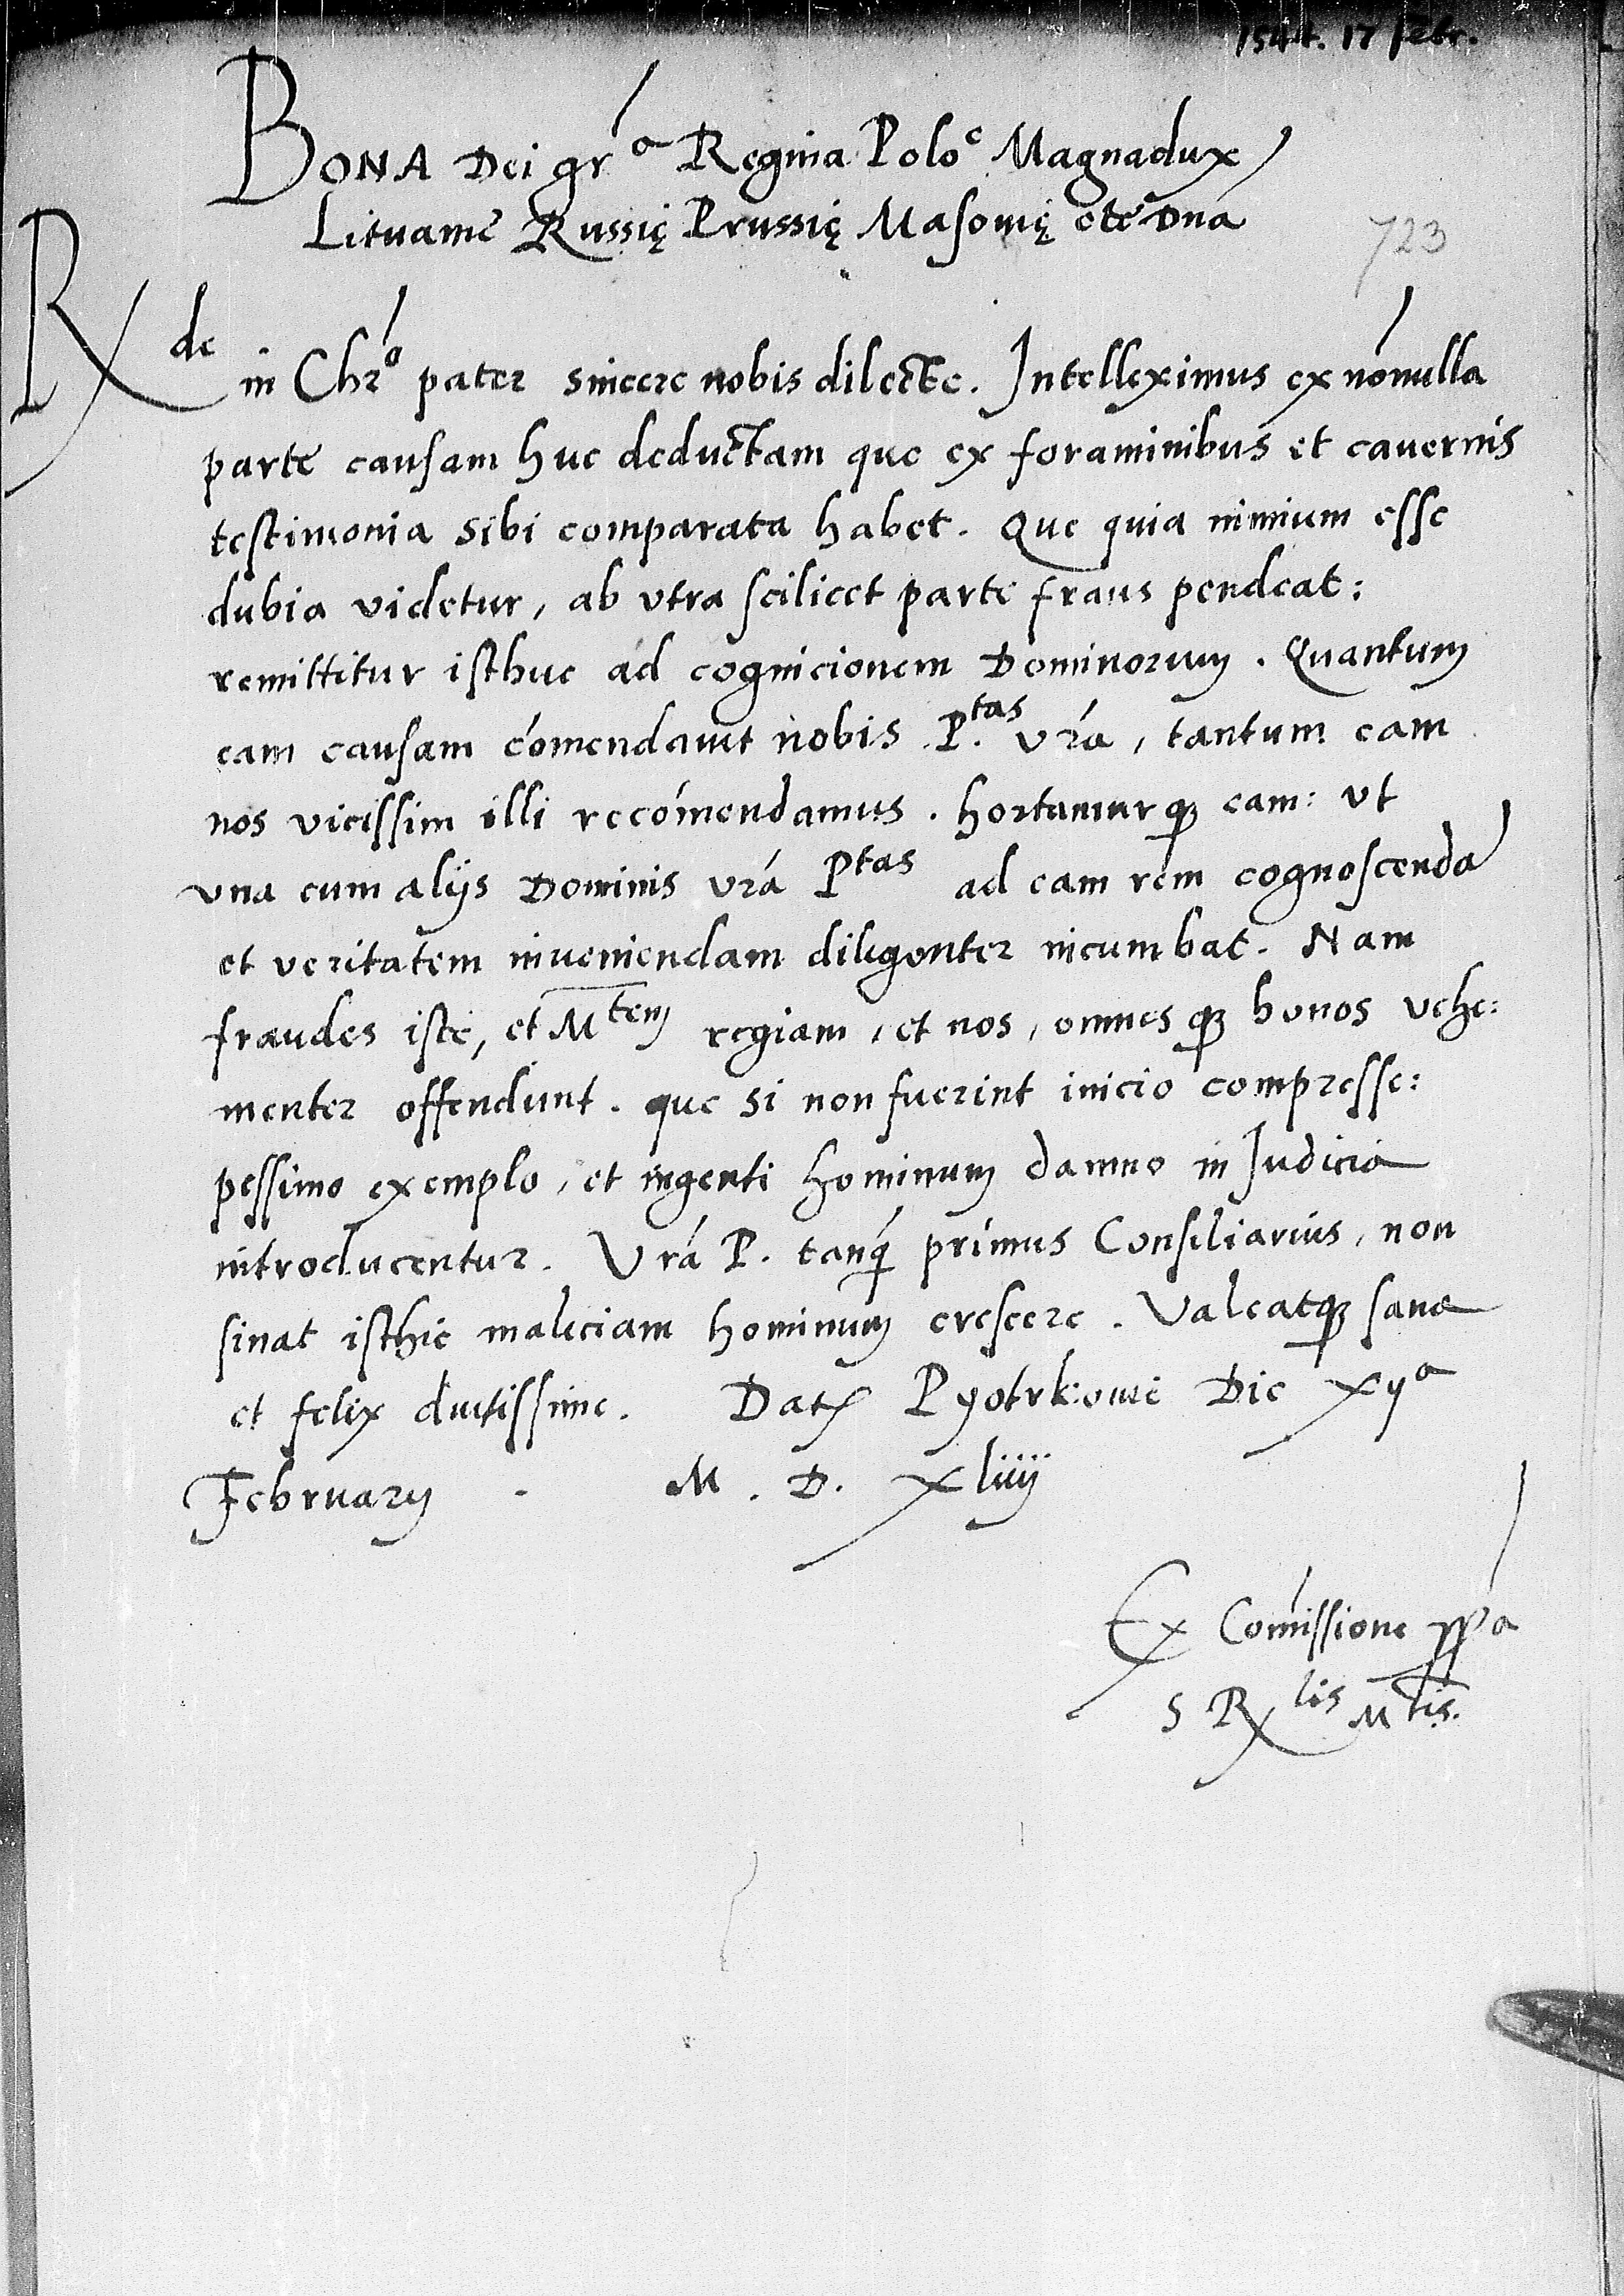 1544. 17 febr.
BONA Dei grã Regina Poloẽ Magnadux
Lituaniẽ Russię Prussię Masovię etc̃ Dnã
723
Rde in Chrõ pater sincere nobis dilecte. Intelleximus ex nõnulla
parte causam huc deductam que ex foraminibus et cavernis
testimonia sibi comparata habet. Que quia nimium esse
dubia videtur, ab vtra scilicet parte fraus pendeat:
remittitur isthuc ad cognicionem Dominorum. Quantum
eam causam cõmendavit nobis P.tas vrã, tantum eam
nos vicissim illi recõmendamus. hortamurq; eam: vt
vna cum alijs Dominis vrã Ptas ad eam rem cognoscendã
et veritatem inveniendam diligenter incumbat. Nam
fraudes iste, et Mtem regiam, et nos, omnesq; bonos vehe:
menter offendunt. que si non fuerint inicio compresse:
pessimo exemplo, et ingenti hominum damno in Judicia
introducentur. Vrã P. tanq̃ primus Consiliarius, non
sinat isthic maliciam hominum crescere. Valeatq; sana
et felix diutissime. Datꝭ Pyotrkovie Die
February . M. D. Xliiij
Ex Cõmissione ppã
S Rlis Mtis.